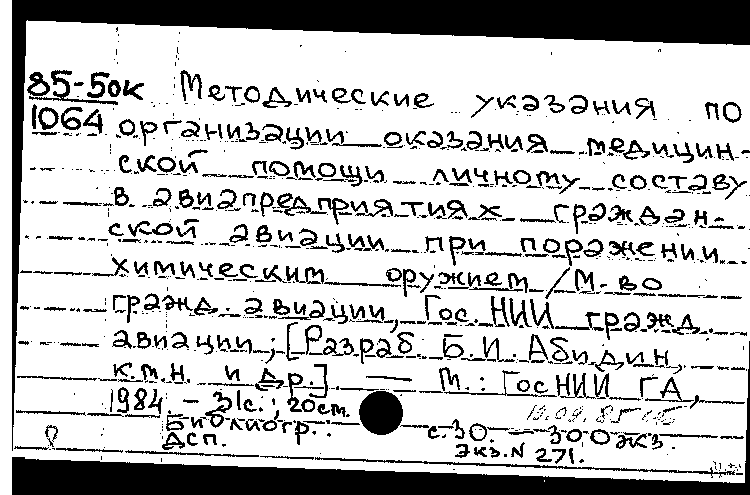 85-5ок Методические указания по
1064 организации оказания медицин-
ской помощи личному составу
в авиапредприятиях граждан-
ской авиации при поражении
химическим оружием / М-во
гражд. авиации, Гос. НИИ гражд.
авиации; [Разраб. Б.И. Абидин,
к.м.н. и др.]. — М.: ГосНИИ ГА,
1984 - 31с.; 20см.
Библиогр.: с.30. — 300экз.
ДСП. Экз.N 271.